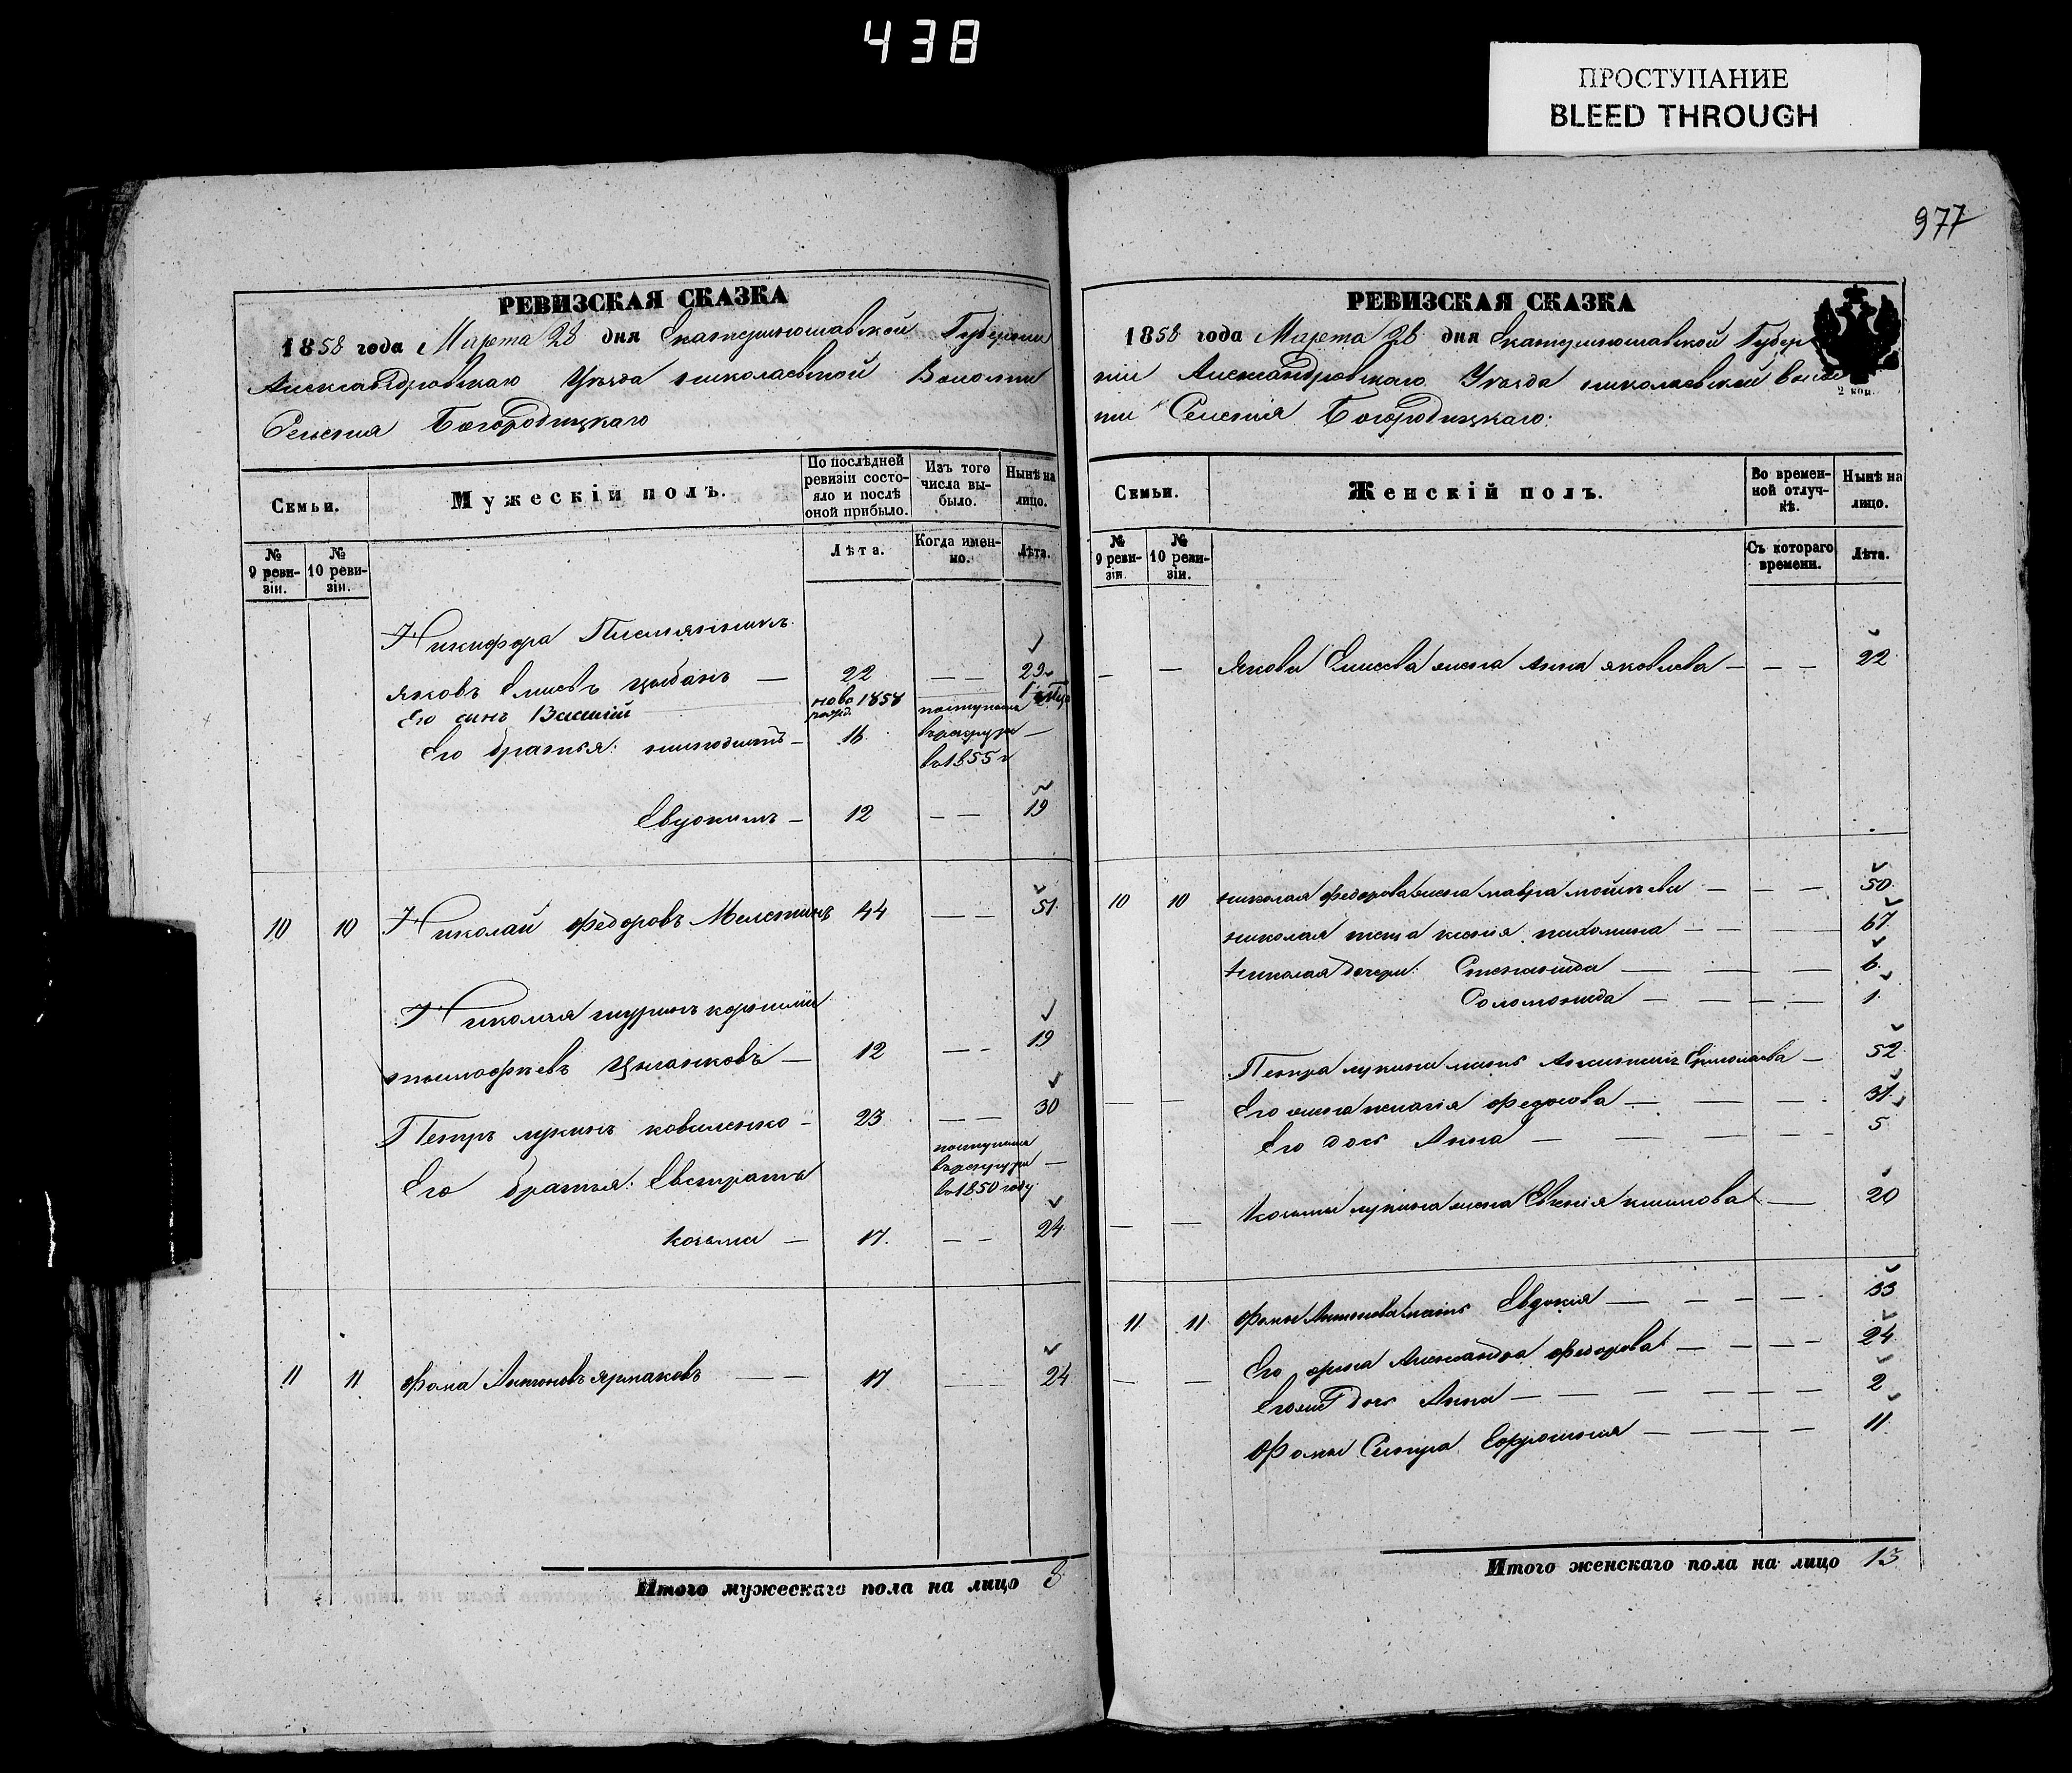 438
ПРОСТУПАНИЕ
BLEED THROUGH
977
РЕВИЗСКАЯ СКАЗКА
1858 года Марта 28 дня Екатеринославской Губернии
Александровскаго Уѣзда Николаевской Волости
Селенія Богородицкаго
Семьи.
Мужескій полъ.
По послѣдней ревизіи состояло и послѣ оной прибыло.
Изъ того числа выбыло.
Нынѣ на лицо.
№ 9 ревизіи.
№ 10 ревизіи.
Лѣта.
Когда именно.
Лѣта.
Никифора
Яковъ Елисѣевъ — 22 — — 29
Его сынъ Василій ново рожд. 1858
Его братья: — 16 поступилъ въ рекруты въ 1855 г —
Евдокимъ — 12 — — 19
10 10 Николай Федоровъ 44 — — 51
Николая шуринъ
Тимофѣевъ Цыганковъ — 12 — — 19
Петръ Лукинъ Коваленко — 23 — — 30
Его братья: Евстратъ поступилъ въ рекруты въ 1850 году —
Козьма — 17 — — 24
11 11 Фома Антоновъ Ярмаковъ — — 17 — — 24
Итого мужескаго пола на лицо 8
РЕВИЗСКАЯ СКАЗКА
1858 года Марта 28 дня Екатеринославской Губер
ніи Александровскаго Уѣзда Николаевской Волос
ти Селенія Богородицкаго:
2 коп.
Семьи.
Женскій полъ.
Во временной отлучкѣ.
Нынѣ на лицо.
№ 9 ревизіи.
№ 10 ревизіи.
Съ котораго времени.
Лѣта.
— — Якова Елисѣева жена Анна Яковлева — — — 22
10 10 Николая Федорова жена Мавра — — — 50
Николая теща Ксенія Пахомова — — — 67
Николая дочери: Степанида — — — 6
Соломонида — — — 1
Петра Лукина мать Ермолаева — 52
— — Его жена Пелагія Федосова — — — 31
Его дочь Анна — — — 5
— — Козьмы Лукина жена Евгенія Климова — 20
11 11 Фомы Антонова мать Евдокія — — — 53
— — Его жена Александра Федорова — — — 24
дочь Анна — — — 2
Фомы Сестра Ефросинія — — — 11
Итого женскаго пола на лицо 13